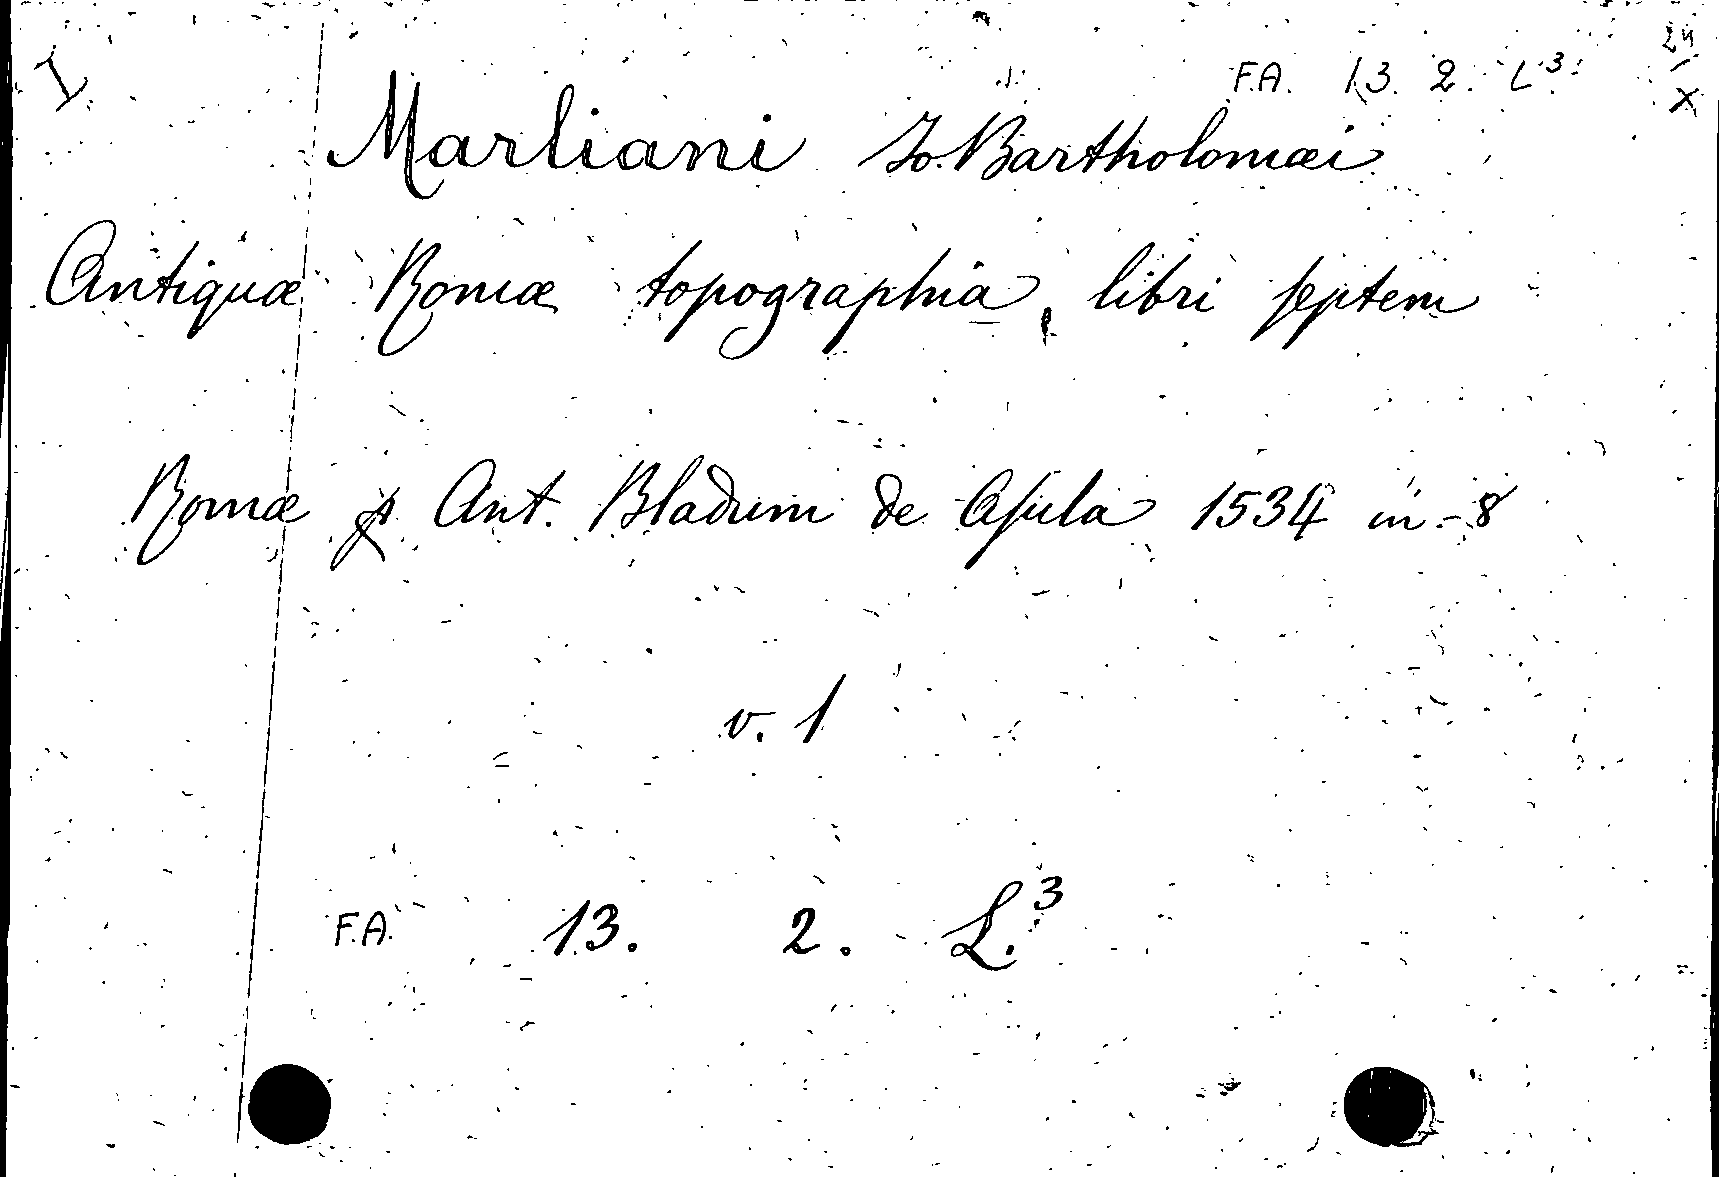 I
24
X
F.A. 13. 2. L3.
Marliani Io. Bartholomæi
Antiquæ Romæ topographia, libri septem
Romæ p Ant. Bladum de Asula 1534 in-8
v. 1
F.A. 13. 2. L.3